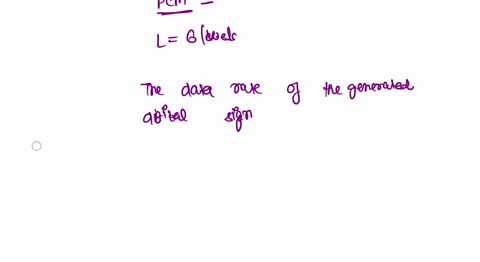 PCM =
L = 6 levels
The data rate of the generated
digital sign